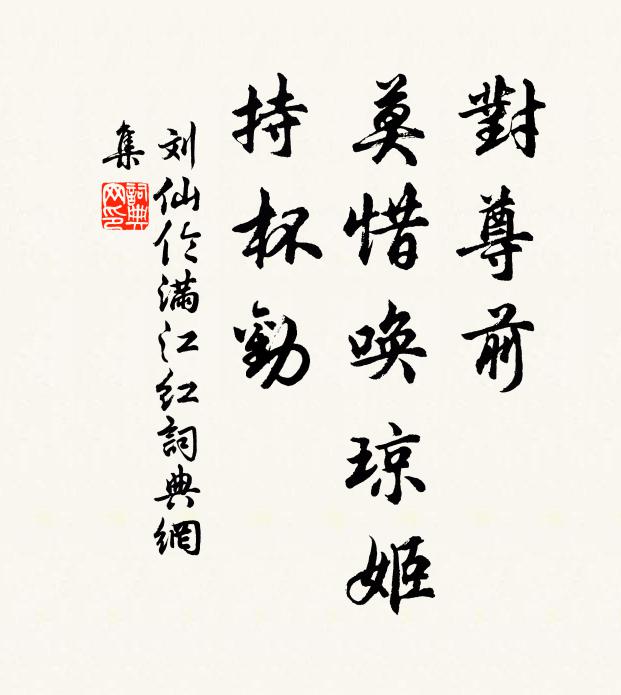 對尊前
莫惜喚琼姬
持杯勸
刘仙伦滿江红詞典網
集
詞典
网印